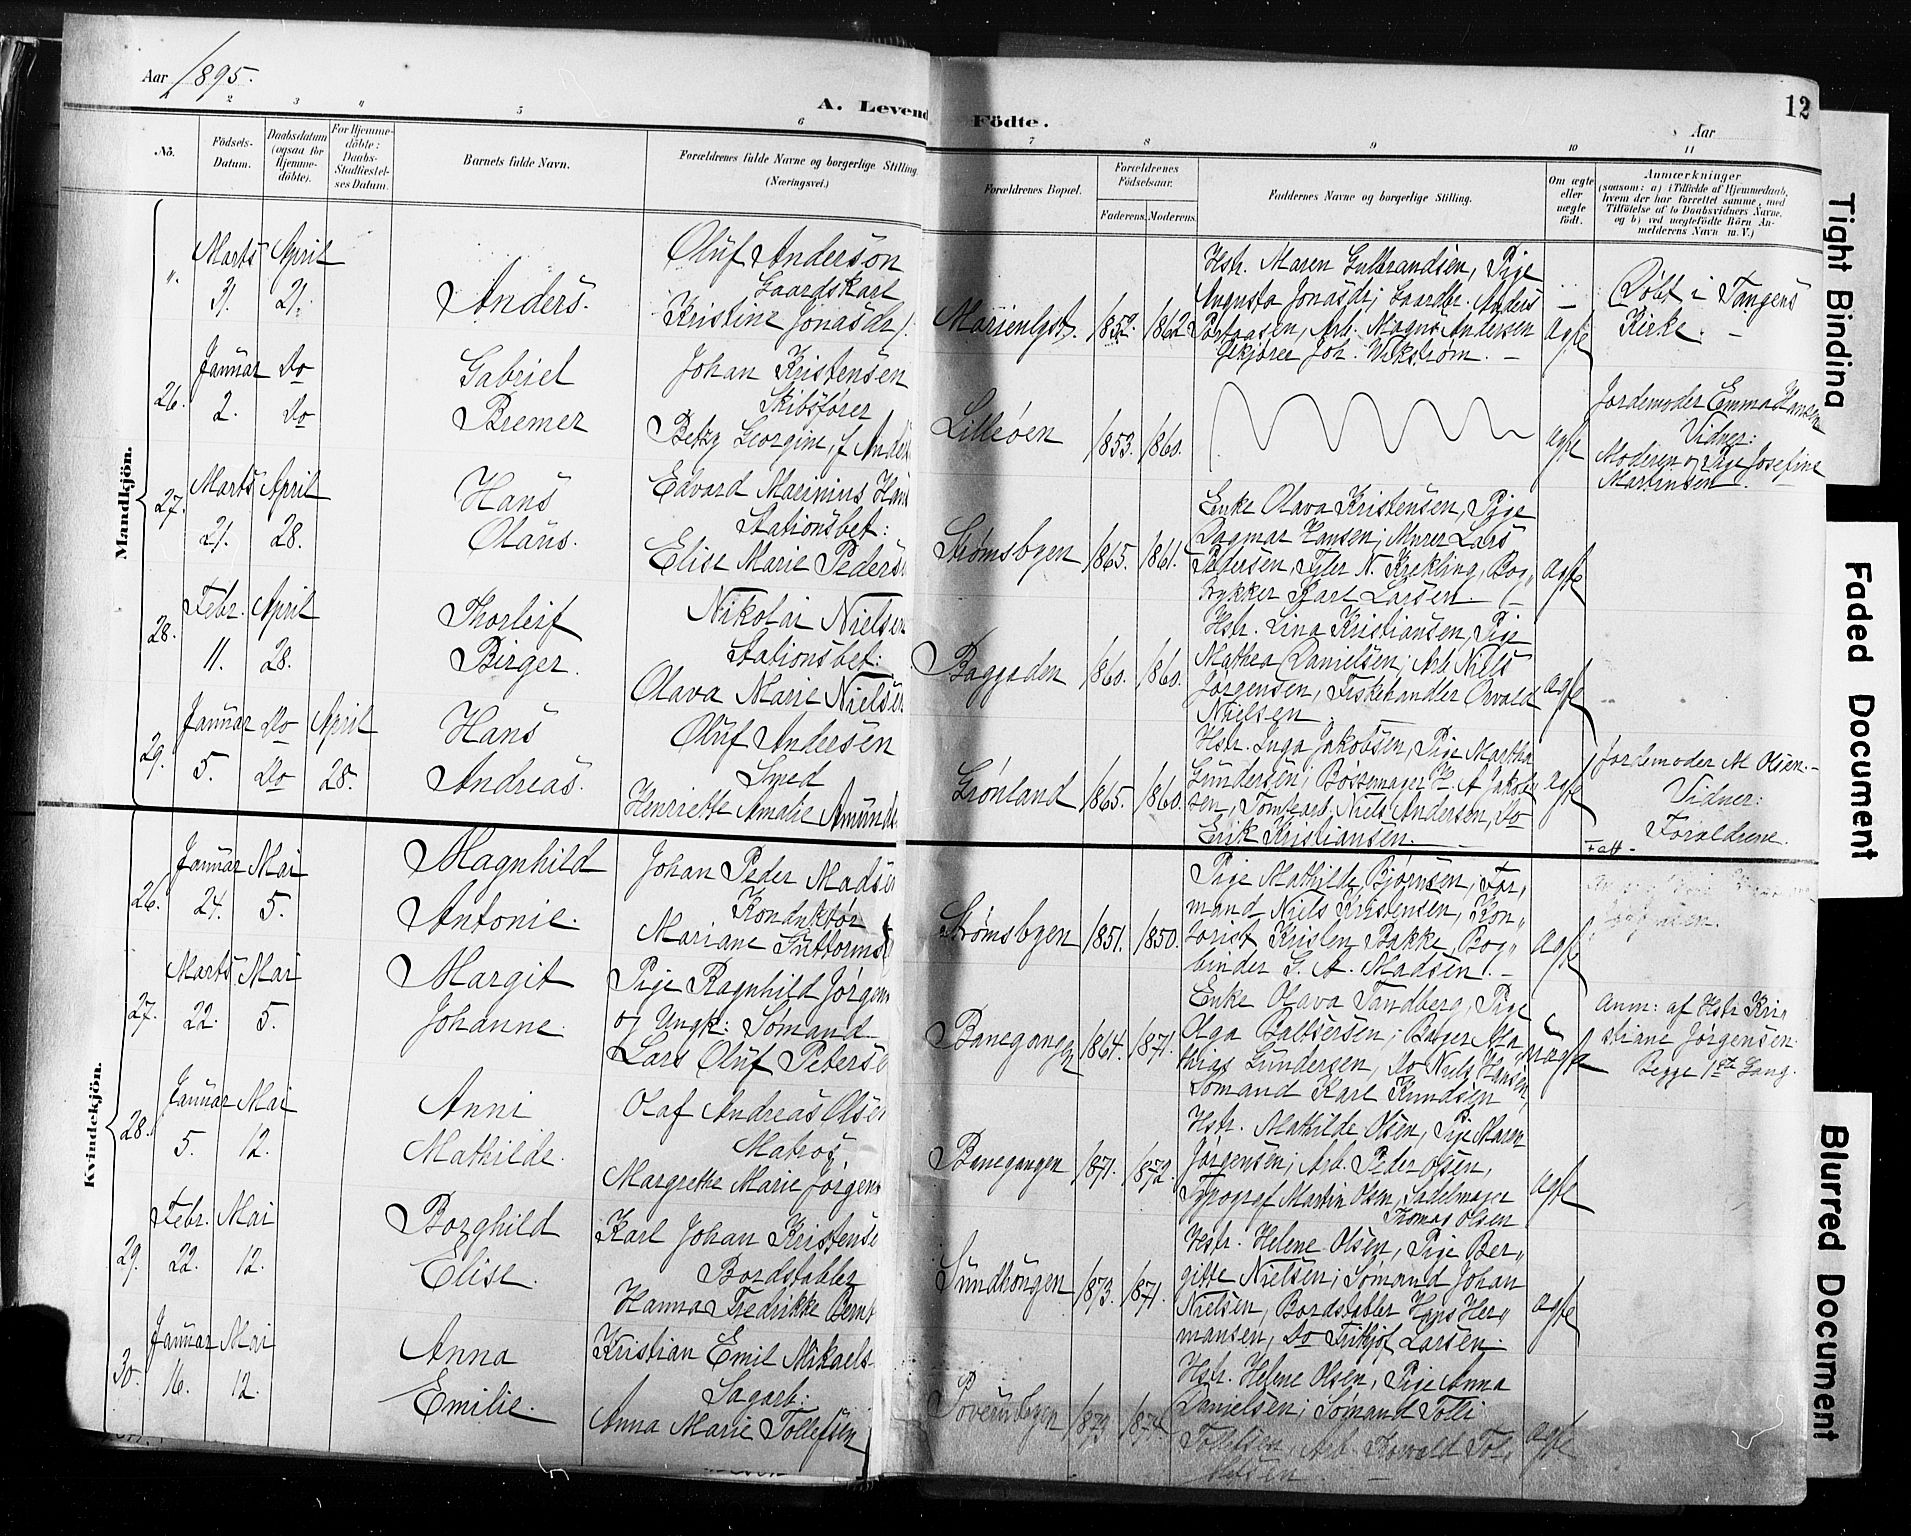 Aar 1895.
A. Levend Fødte.
12
Aar
2 3 " 5 6 7 8 9 10 11
No.
Fødsels-Datum.
Daabsdatum (ogsaa for Hjemme-døbte).
For Hjemme-døbte: Daabs-Stadfæstel-ses Datum.
Barnets fulde Navn.
Forældrenes fulde Navne og borgerlige Stilling (Næringsvei.)
Forældrenes Bopæl.
Forældrenes Fødselsaar.
Faderens. Moderens.
Faddernes Navne og borgerlige Stilling.
Om ægte eller uægte født.
Anmærkninger
(saasom: a) i Tilfælde af Hjemmedaab, hvem der har forrettet samme, med Tilføielse af to Daabsvidners Navne, og b) ved uægtefødte Børn An-melderens Navn m. V.)
Mandkjøn.
". Marts 31. April 21.
Anders.
Oluf Anderson
Gaardskarl
Kristine Jonasdr.
Marienlyst. 1852. 1862
Hstr. Maren Gulbrandsen, Pige
Augusta Jonasdr; Gaardbr. Anders
Arb. Magnus Andersen
Joh. Vikstrøm. –
ægte
Døbt i Tangens
Kirke. –
26. Januar 2. Do Do
Gabriel
Bremer
Johan Kristensen
Skibsfører
Betzy Georgine, f. Ander
Lilleøen 1853. 1860.
ægte
Jordemoder Emma Hansen
Vidner:
Moderen og Pige Josefine
Martinsen.
27. Marts 21. April 28.
Hans
Olaus.
Edvard Marinius Han
Stationsbet:
Elise Marie Peders
Strømsbyen 1865. 1861.
Enke Olava Kristensen, Pige
Dagmar Hansen; Murer Lars
Pedersen, N. Krekling, Bog„
trykker Karl Larsen.
ægte
28. Febr. 11. April 28.
Thorleif
Birger.
Nikolai Nielsen
Stationsbet:
Olava Marie Nielsen
Baggaden 1860. 1860.
Hstr. Lina Kristiansen, Pige
Mathea Danielsen; Arb. Niels
Jørgensen, Fiskehandler Osvald
Nielsen.
ægte
29. Januar 5. Do Do April 28.
Hans
Andreas.
Oluf Andersen
Smed
Henriette Amalie Amunds
Grønland 1865. 1860.
Hstr. Inga Jakobsen, Pige Martha
Gundersen; Bøssemager A. Jakob„
sen, Niels Anderson, Do
Erik Kristiansen.
ægte
Jordemoder M. Olsen. –
Vidner:
Forældrene.
Kvindekjøn.
26. Januar 24. Mai 5.
Magnhild
Antonie.
Johan Peder Madse
Konduktør
Mariane Guttorms
Strømsbyen 1851. 1850.
Pige Mathilde Bjørnsen, For„
mand Niels Kristensen, Kon„
torist Kristen Bakke, Bog„
binder G. A. Madsen. –
ægte
27. Marts 22. Mai 5.
Margit
Johanne.
Pige Ragnhild Jørgen
og Ungk: Sømand
Lars Oluf Peterse
Banegangen 1864. 1871.
Enke Olava Tandberg, Pige
Olga Baltsersen; Bager Ma„
thias Gundersen, Do Niels Hansen,
Sømand Karl Knudsen
uægte
Anm: af Hstr Kri„
stiane Jørgensen.
Begge 1ste Gang.
28. Januar 5. Mai 12.
Anni
Mathilde.
Olaf Andreas Olsen
Matros
Margrethe Marie Jørgens
Banegangen 1871. 1872.
Hstr. Mathilde Olsen, Pige Maren
Jørgensen; Arb. Peder Olsen,
Typograf Martin Olsen, Sadelmager
Thomas Olsen
ægte
29. Febr. 22. Mai 12.
Borghild
Elise.
Karl Johan Kristense
Bordstabler
Hanna Fredrikke Bernt
Sundhougen 1873. 1871.
Hstr. Helene Olsen, Pige Ber„
gitte Nielsen; Sømand Johan
Nielsen, Bordstabler Hans Her„
mansen, Do Fritjof Larsen.
ægte
30. Januar 16. Mai 12.
Anna
Emilie.
Kristian Emil Mikaels
Sagarb:
Anna Marie Tollefsen
1873 1874
Hstr. Helene Olsen, Pige Anna
Danielsen; Sømand Tolli
Tollefsen, Arb. Tol„
lefsen. –
ægte
Tight Binding
Faded Document
Blurred Document